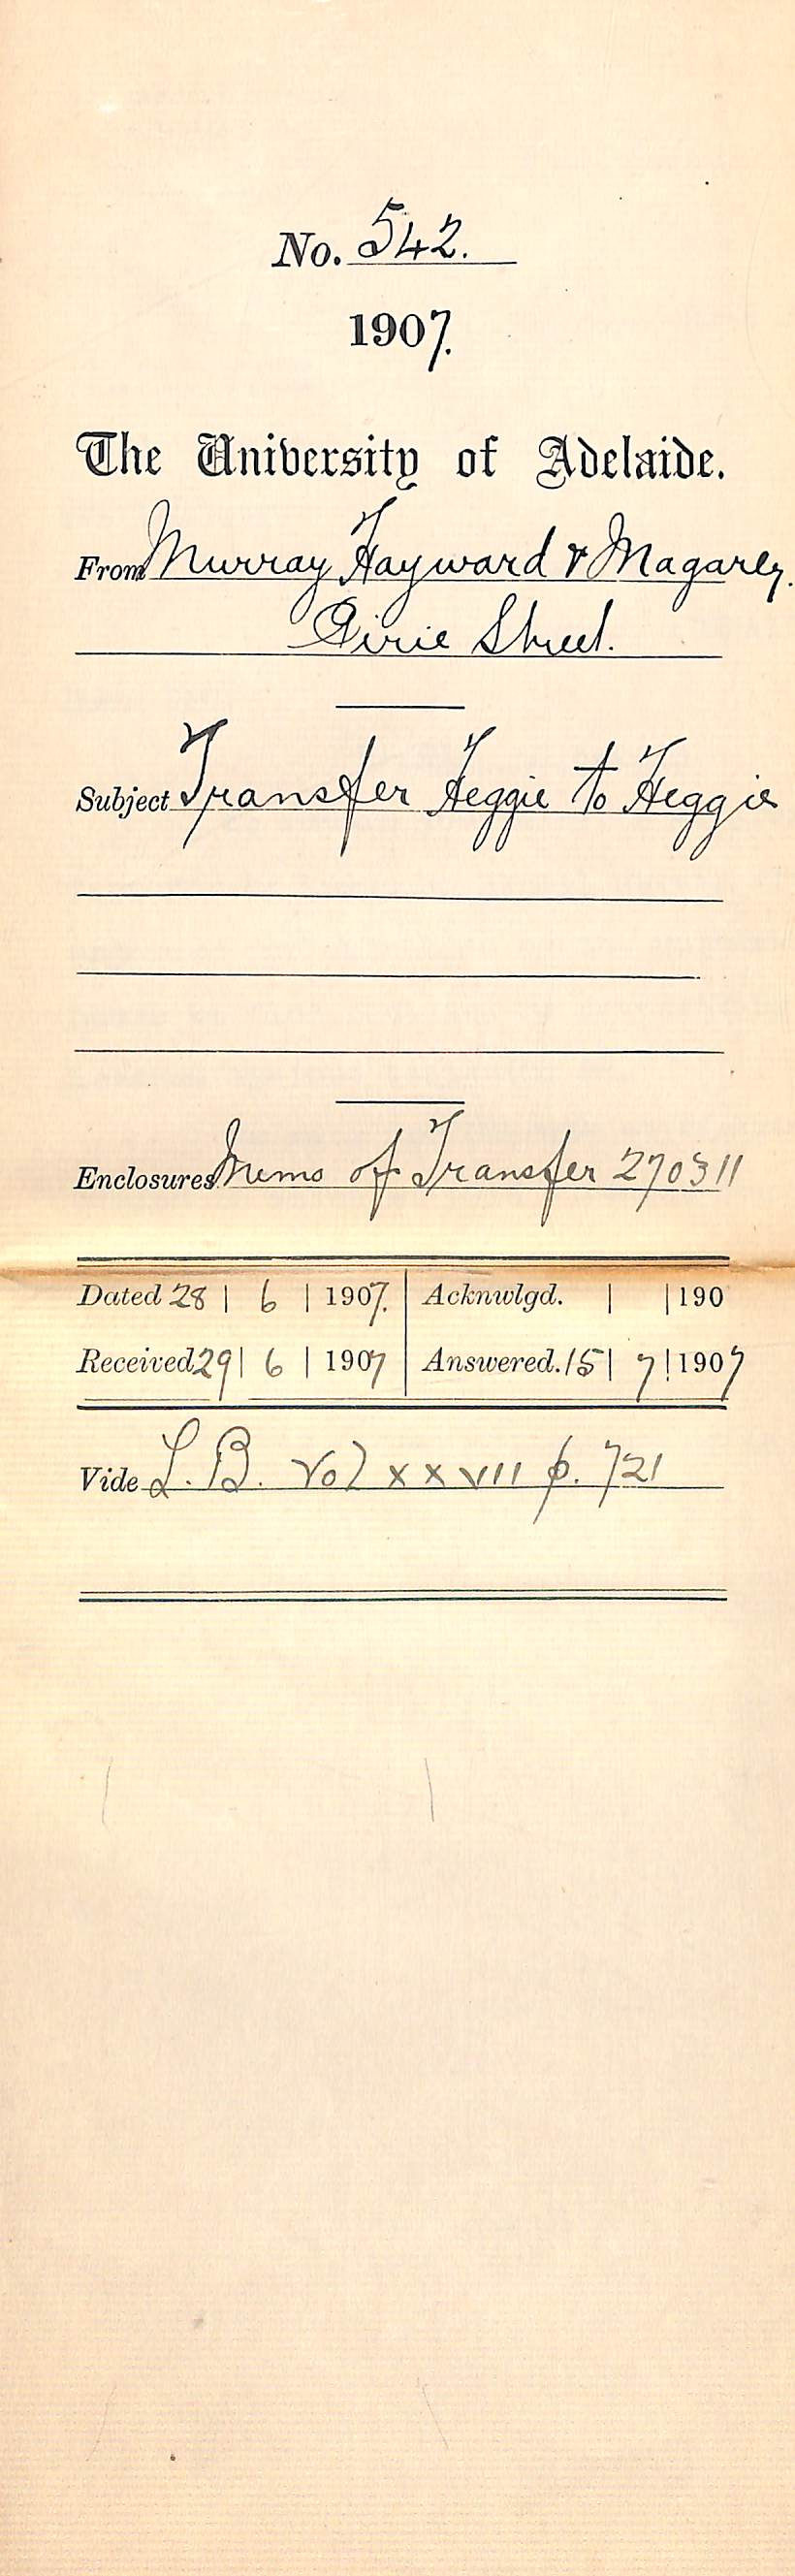 No. 542.
1907.
The University of Adelaide.
From Murray Hayward & Magarey.
Pirie Street.
Subject Transfer Heggie to Heggie
Enclosures Memo of Transfer 270311
Dated 28 | 6 | 1907. Acknwlgd. | | 190
Received 29 | 6 | 1907 Answered. 15 | 7 | 1907
Vide L.B. Vol xxvii p. 721